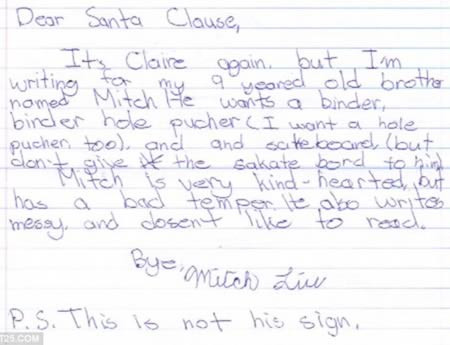 Dear Santa Clause,
It's Claire again. but I'm
writing for my 9 yeared old brother
named Mitch He wants a binder,
binder hole pucher (I want a hole
pucher, too), and and sateboard, (but
don't give the sakate bord to him)
Mitch is very kind-hearted, but
has a bad temper. He also writes
messy, and dosen't like to read.
Bye,
Mitch Liu
P.S. This is not his sign.
T25.COM